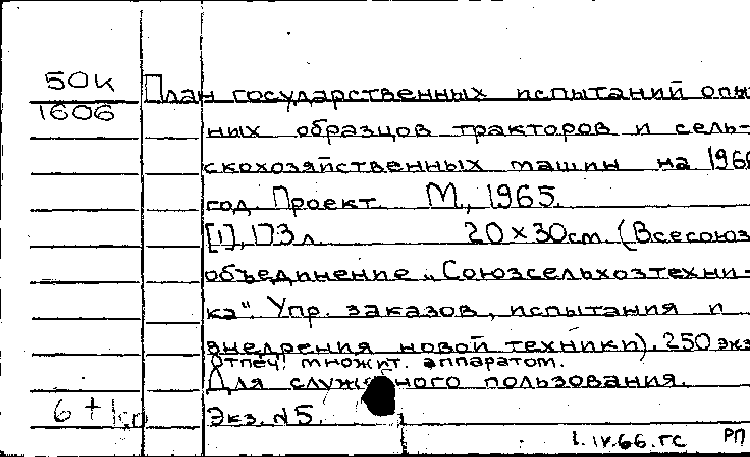 50К План государственных испытаний опыт
1606
ных образцов тракторов и сель-
скохозяйственных машин на 1966
год. Проект. М., 1965.
[1], 173 л. 20 × 30 см. (Всесоюз
объединение „Союзсельхозтехни-
ка". Упр. заказов, испытания и
внедрения новой техники). 250 экз
Отпеч. множит. аппаратом.
Для служебного пользования.
6 + 1
Экз. №5.
1.IV.66. ГС РП